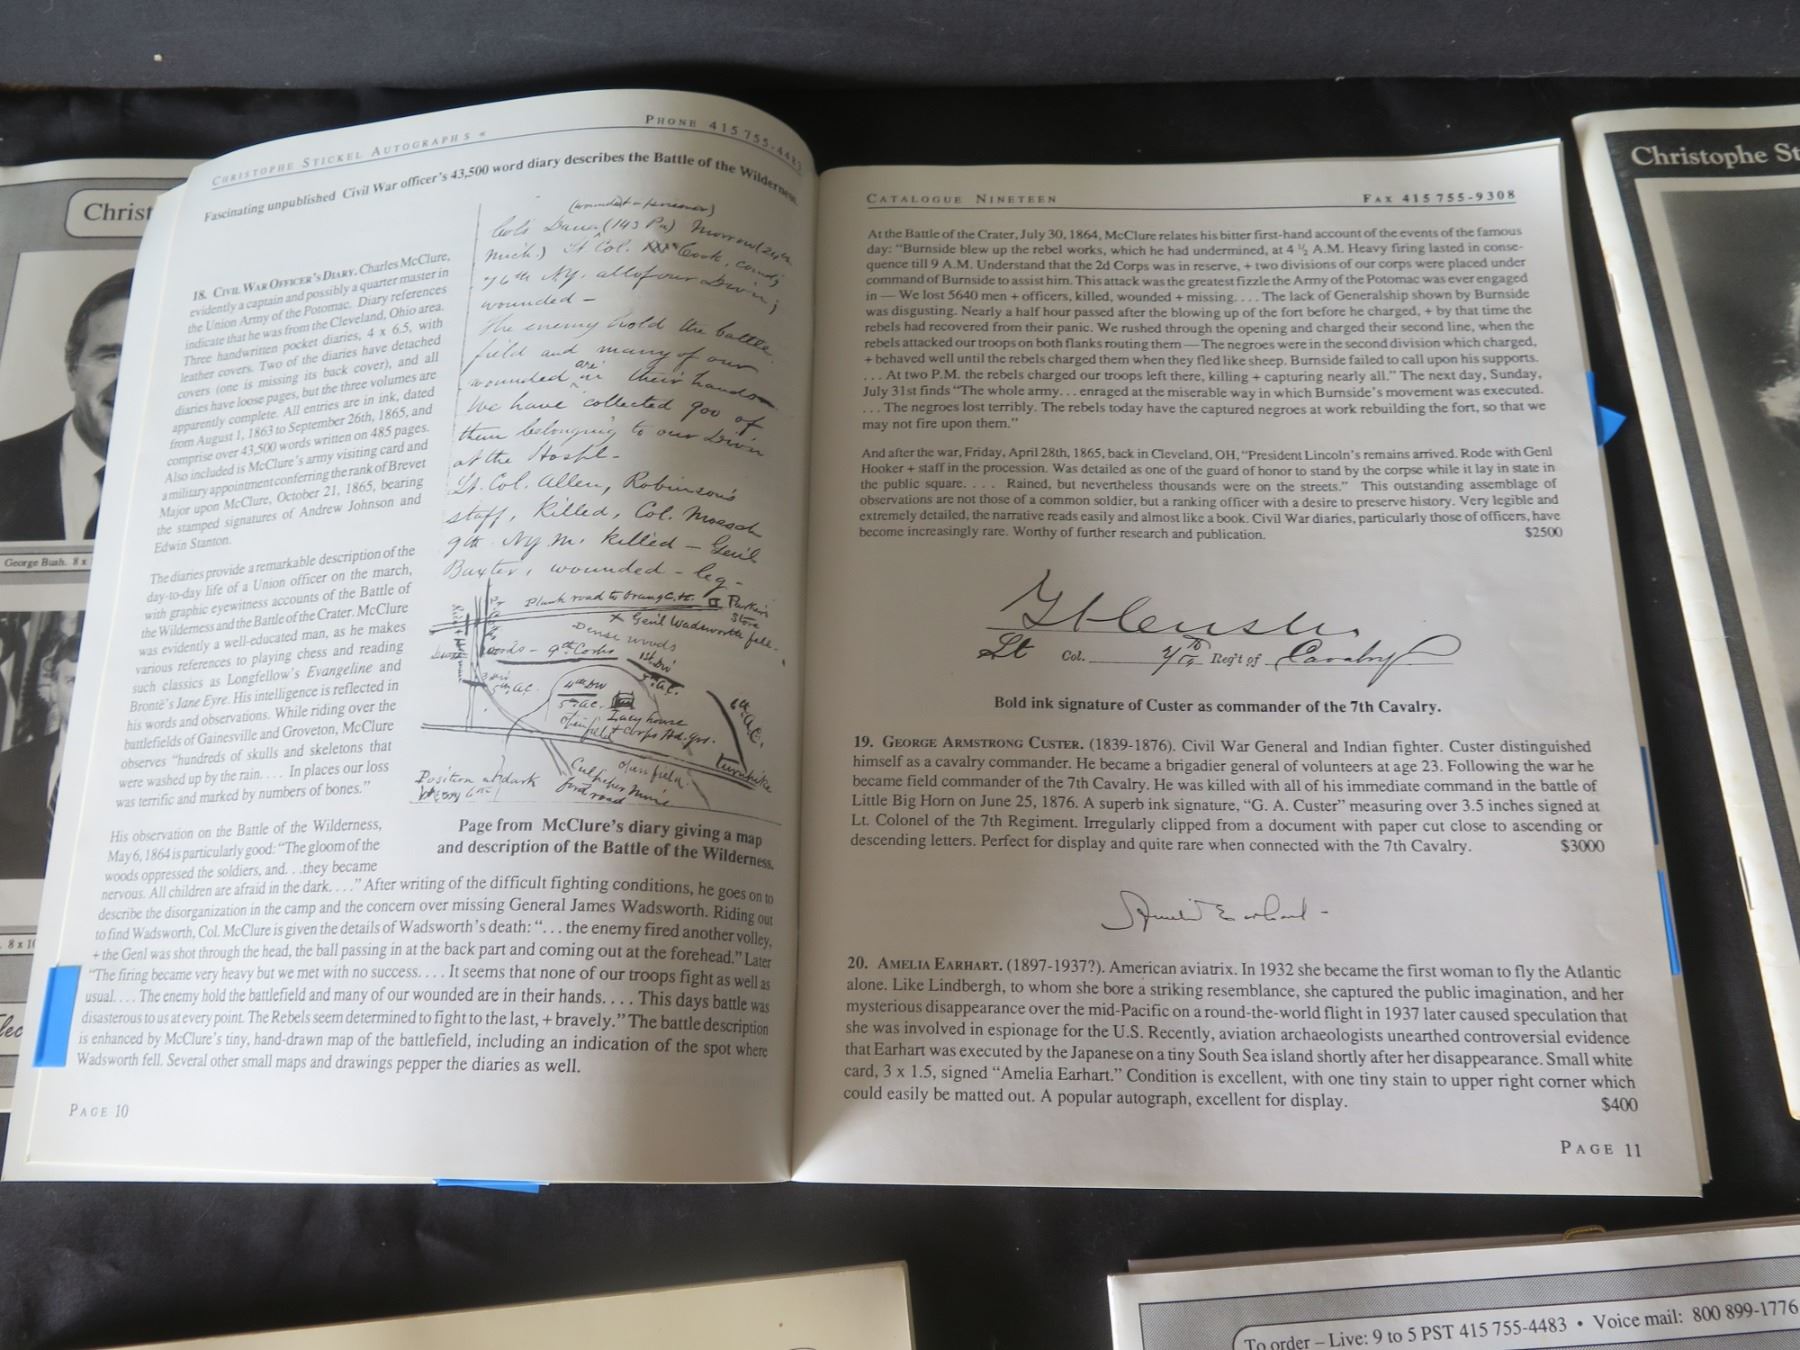 CHRISTOPHE STICKEL AUTOGRAPHS
PHONE 415 755-4483
Fascinating unpublished Civil War officer's 43,500 word diary describes the Battle of the Wilderness.
18. CIVIL WAR OFFICER'S DIARY. Charles McClure,
evidently a captain and possibly a quarter master in
the Union Army of the Potomac. Diary references
indicate that he was from the Cleveland, Ohio area.
Three handwritten pocket diaries, 4 x 6.5, with
leather covers. Two of the diaries have detached
covers (one is missing its back cover), and all
diaries have loose pages, but the three volumes are
apparently complete. All entries are in ink, dated
from August 1, 1863 to September 26th, 1865, and
comprise over 43,500 words written on 485 pages.
Also included is McClure's army visiting card and
a military appointment conferring the rank of Brevet
Major upon McClure, October 21, 1865, bearing
the stamped signatures of Andrew Johnson and
Edwin Stanton.
The diaries provide a remarkable description of the
day-to-day life of a Union officer on the march,
with graphic eyewitness accounts of the Battle of
the Wilderness and the Battle of the Crater. McClure
was evidently a well-educated man, as he makes
various references to playing chess and reading
such classics as Longfellow's Evangeline and
Bronté's Jane Eyre. His intelligence is reflected in
his words and observations. While riding over the
battlefields of Gainesville and Groveton, McClure
observes "hundreds of skulls and skeletons that
were washed up by the rain. . . . In places our loss
was terrific and marked by numbers of bones."
His observation on the Battle of the Wilderness,
May 6, 1864 is particularly good: "The gloom of the
woods oppressed the soldiers, and. . .they became
nervous. All children are afraid in the dark. . . ." After writing of the difficult fighting conditions, he goes on to
describe the disorganization in the camp and the concern over missing General James Wadsworth. Riding out
to find Wadsworth, Col. McClure is given the details of Wadsworth's death: ". . . the enemy fired another volley,
+ the Genl was shot through the head, the ball passing in at the back part and coming out at the forehead." Later
"The firing became very heavy but we met with no success. . . . It seems that none of our troops fight as well as
usual. . . . The enemy hold the battlefield and many of our wounded are in their hands. . . . This days battle was
disasterous to us at every point. The Rebels seem determined to fight to the last, + bravely." The battle description
is enhanced by McClure's tiny, hand-drawn map of the battlefield, including an indication of the spot where
Wadsworth fell. Several other small maps and drawings pepper the diaries as well.
PAGE 10
(wounded + prisoner)
Cols Dana (143 Pa) Morrow 24th
Mich.) Lt Col. Cook, comdg
76th N.Y. all of our Divn;
wounded –
The enemy hold the battle
field and many of our
wounded are in their hands
We have collected 900 of
them belonging to our Divn
at the Hospl –
Lt. Col. Allen, Robinson's
staff, killed, Col. Moesch
9th N.Y.M. killed – Genl
Baxter, wounded – leg –
Plank road to Orange C.H.
Parker's
Store
x Genl Wadsworth fell.
Dense woods
woods – 9th Corps
1st Div
5th A.C.
5th A.C.
4th Div
5th A.C.
6th A.C.
Lacy house
Open field
+ Corps Hd. Qrs.
Turnpike
Open field
Culpeper Mine
ford road
Position at dark
Page from McClure's diary giving a map
and description of the Battle of the Wilderness.
CATALOGUE NINETEEN
FAX 415 755-9308
At the Battle of the Crater, July 30, 1864, McClure relates his bitter first-hand account of the events of the famous
day: "Burnside blew up the rebel works, which he had undermined, at 4 ½ A.M. Heavy firing lasted in conse-
quence till 9 A.M. Understand that the 2d Corps was in reserve, + two divisions of our corps were placed under
command of Burnside to assist him. This attack was the greatest fizzle the Army of the Potomac was ever engaged
in — We lost 5640 men + officers, killed, wounded + missing. . . . The lack of Generalship shown by Burnside
was disgusting. Nearly a half hour passed after the blowing up of the fort before he charged, + by that time the
rebels had recovered from their panic. We rushed through the opening and charged their second line, when the
rebels attacked our troops on both flanks routing them — The negroes were in the second division which charged,
+ behaved well until the rebels charged them when they fled like sheep. Burnside failed to call upon his supports.
. . . At two P.M. the rebels charged our troops left there, killing + capturing nearly all." The next day, Sunday,
July 31st finds "The whole army. . . enraged at the miserable way in which Burnside's movement was executed.
. . . The negroes lost terribly. The rebels today have the captured negroes at work rebuilding the fort, so that we
may not fire upon them."
And after the war, Friday, April 28th, 1865, back in Cleveland, OH, "President Lincoln's remains arrived. Rode with Genl
Hooker + staff in the procession. Was detailed as one of the guard of honor to stand by the corpse while it lay in state in
the public square. . . . Rained, but nevertheless thousands were on the streets." This outstanding assemblage of
observations are not those of a common soldier, but a ranking officer with a desire to preserve history. Very legible and
extremely detailed, the narrative reads easily and almost like a book. Civil War diaries, particularly those of officers, have
become increasingly rare. Worthy of further research and publication. $2500
G A Custer
Lt Col. 7th Reg't of Cavalry
Bold ink signature of Custer as commander of the 7th Cavalry.
19. GEORGE ARMSTRONG CUSTER. (1839-1876). Civil War General and Indian fighter. Custer distinguished
himself as a cavalry commander. He became a brigadier general of volunteers at age 23. Following the war he
became field commander of the 7th Cavalry. He was killed with all of his immediate command in the battle of
Little Big Horn on June 25, 1876. A superb ink signature, "G. A. Custer" measuring over 3.5 inches signed at
Lt. Colonel of the 7th Regiment. Irregularly clipped from a document with paper cut close to ascending or
descending letters. Perfect for display and quite rare when connected with the 7th Cavalry. $3000
Amelia Earhart
20. AMELIA EARHART. (1897-1937?). American aviatrix. In 1932 she became the first woman to fly the Atlantic
alone. Like Lindbergh, to whom she bore a striking resemblance, she captured the public imagination, and her
mysterious disappearance over the mid-Pacific on a round-the-world flight in 1937 later caused speculation that
she was involved in espionage for the U.S. Recently, aviation archaeologists unearthed controversial evidence
that Earhart was executed by the Japanese on a tiny South Sea island shortly after her disappearance. Small white
card, 3 x 1.5, signed "Amelia Earhart." Condition is excellent, with one tiny stain to upper right corner which
could easily be matted out. A popular autograph, excellent for display. $400
PAGE 11
Christ
George Bush. 8 x
. 8 x 10
Christophe St
To order – Live: 9 to 5 PST 415 755-4483 • Voice mail: 800 899-1776